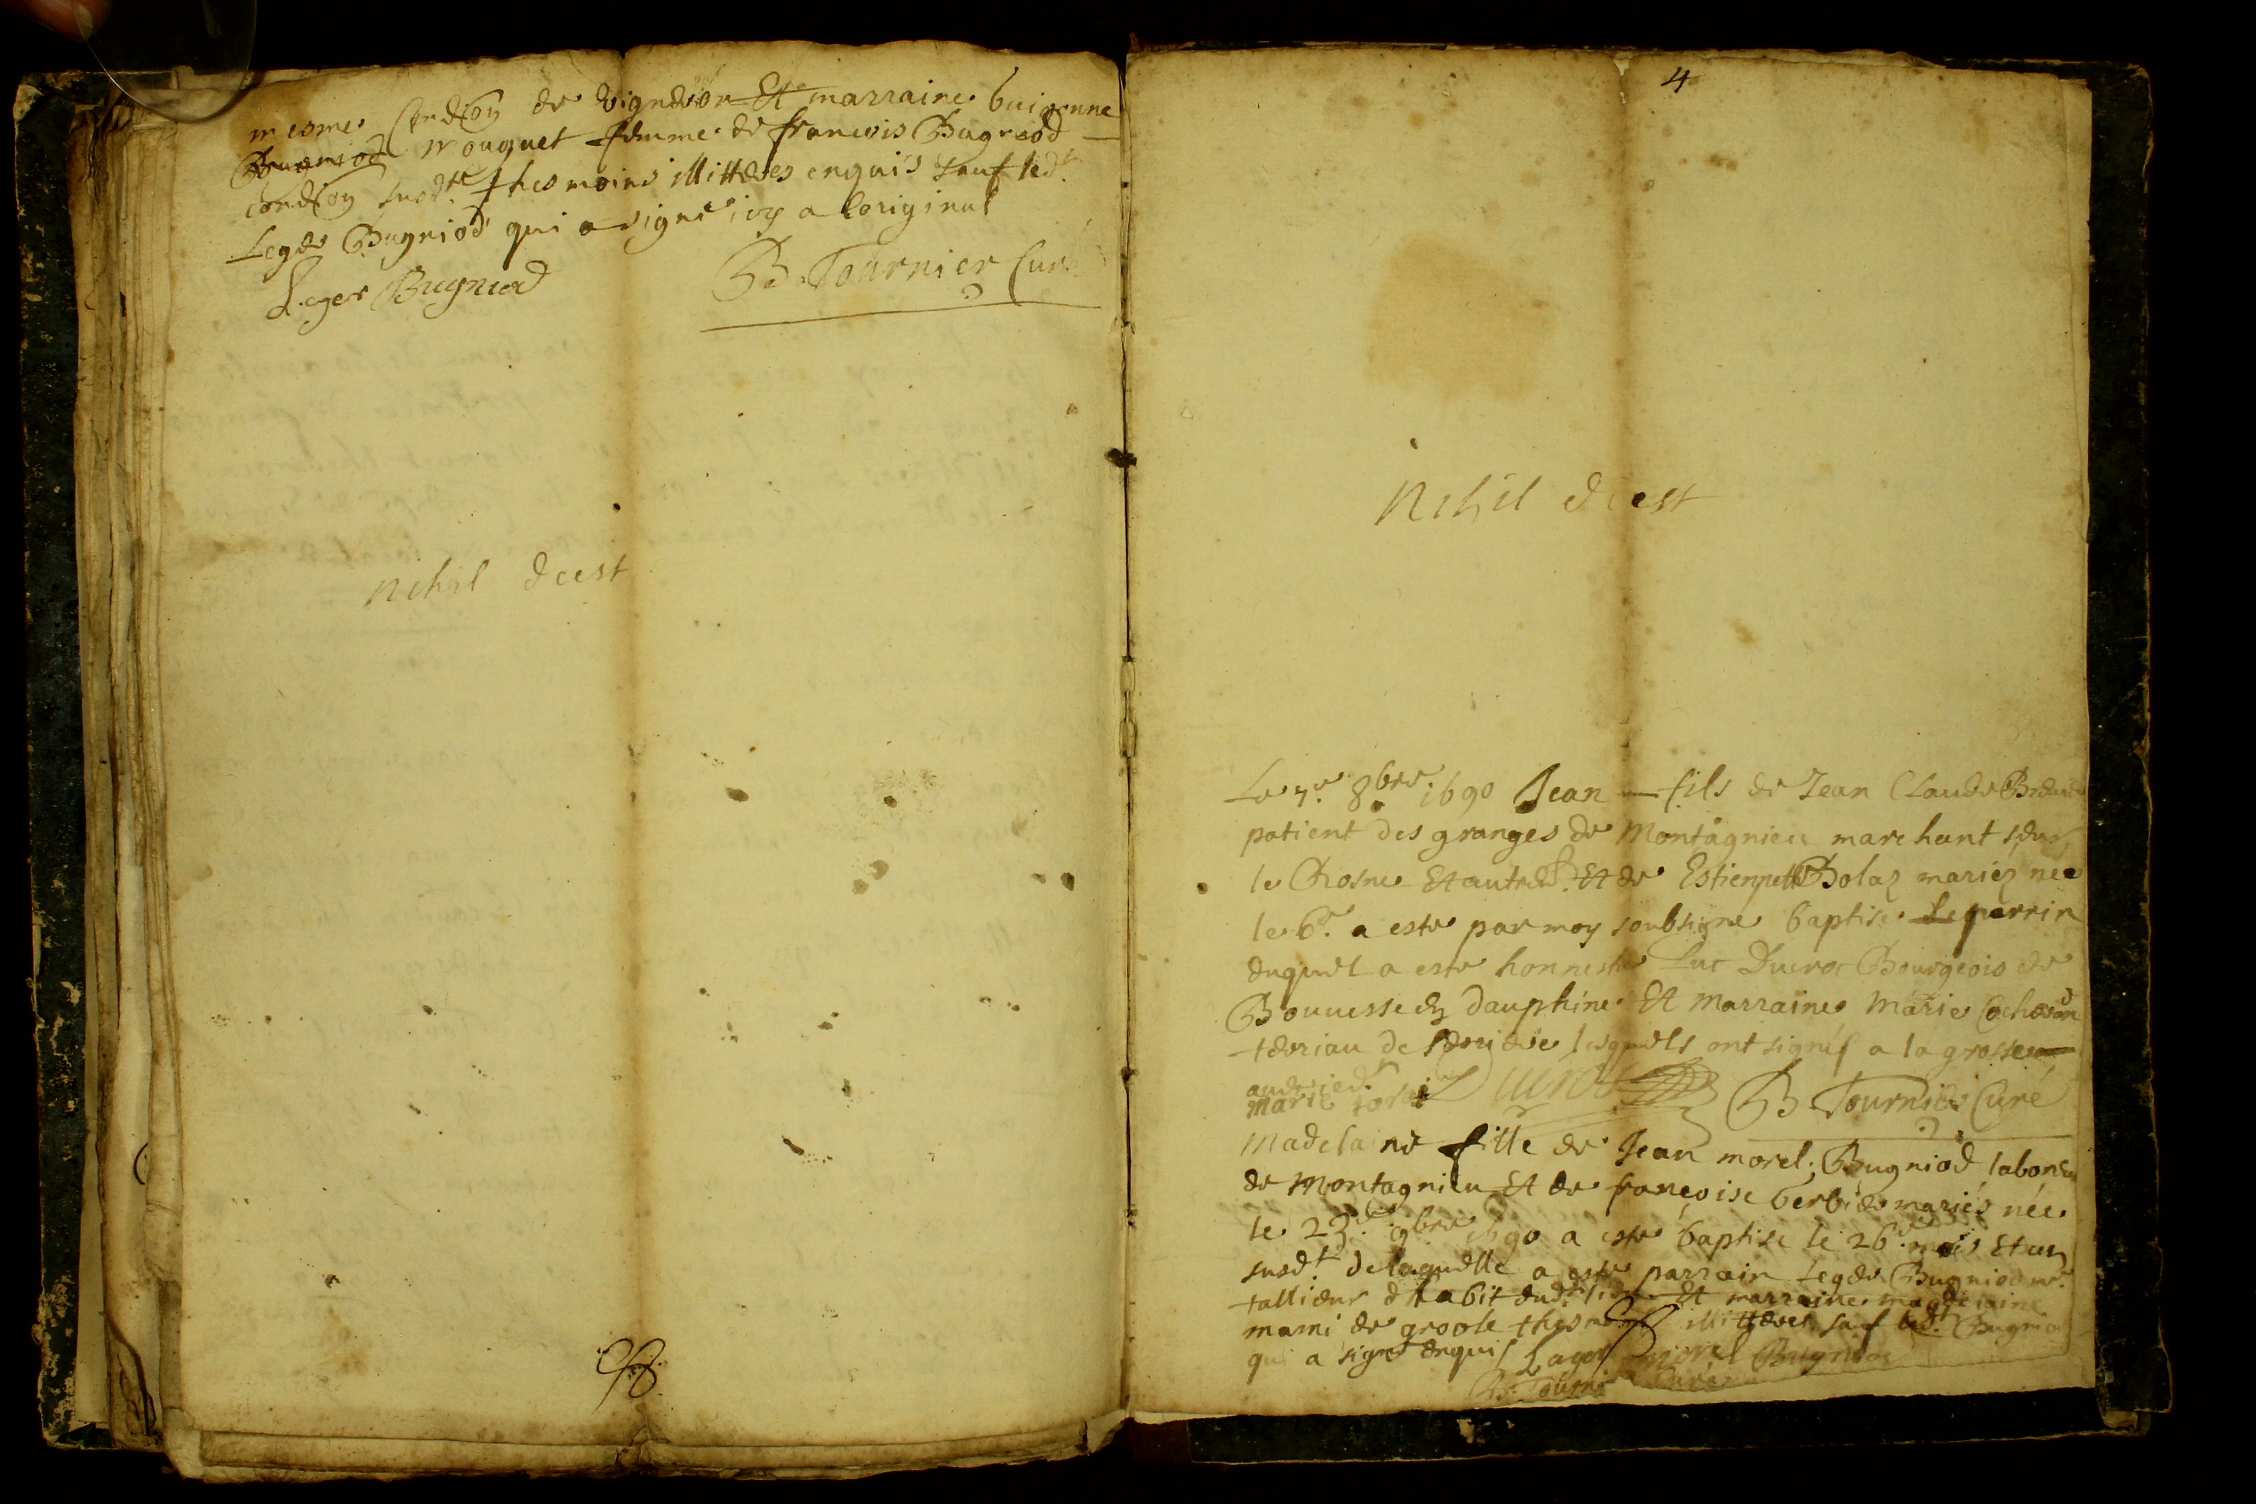 mesme condion de vigneron Et marraine buigonne
Bugniod Mouquet femme de francois Bugniod
condion susdte thesmoins illitteres enquis sauf ledt
Leger Bugniod qui a signé icy a loriginal
Leger Bugniod B. Tournier Curé
nihil deest
4
Nihil deest
Le 7e 8bre 1690 Jean fils de Jean Claude
patient des granges de Montagnieu marchant sur
le Rosne Et autres Et de Estiennette Bolaz mariez née
le 6e a este par moy soubsigne baptisé Le parrin
duquel a este honneste Luc Ducros Bourgeois de
Bouuesse en dauphine Et Marraine Marie
de lesquels ont signés a la grosse
Marie Ducros B Tournier Curé
Madelaine fille de Jean morel Bugniod laboureur
de Montagnieu Et de francoise berbier mariés née
le 23e 9bre 1690 a este baptisé le 26e mois Et an
susdt de laquelle a este parrain Leger Bugniod me
tallieur dhabit dudt lieu Et marraine magdelaine
mami de groole thesmoins illitteres sauf ledt Bugniod
qui a signé enquis Leger morel Bugniod
B. Tournier Curé